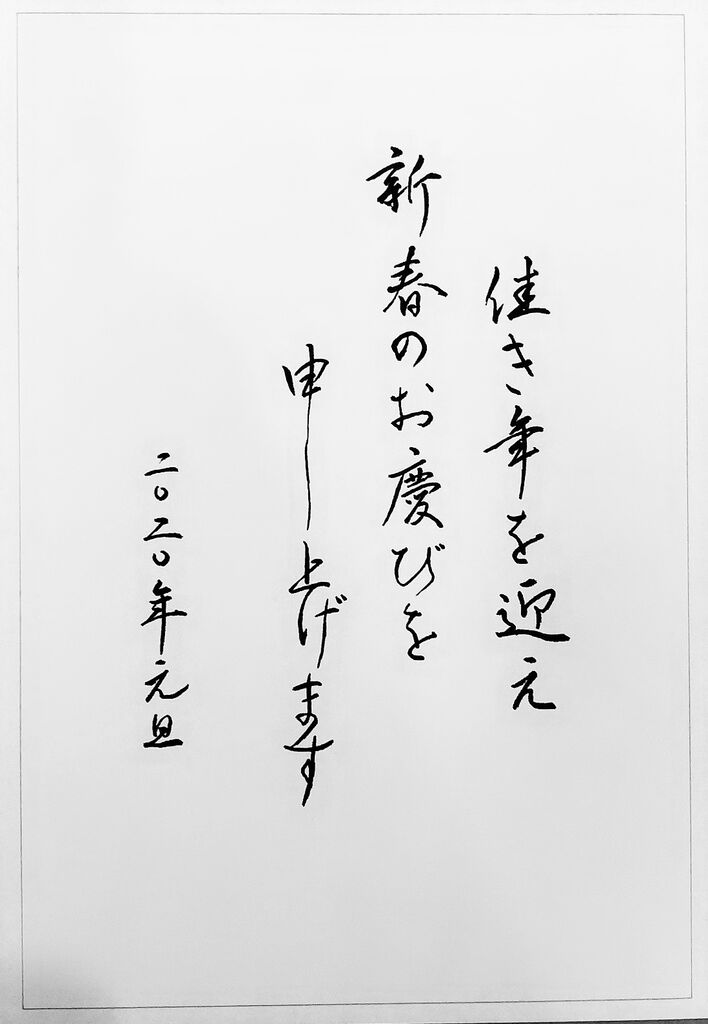 佳き年を迎え
新春のお慶びを
申し上げます
二〇二〇年元旦